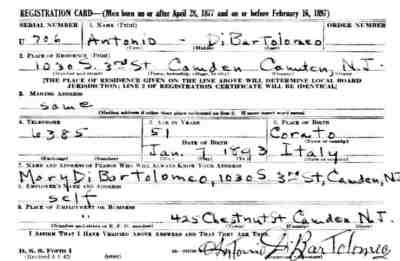 REGISTRATION CARD—(Men born on or after April 28, 1877 and on or before February 16, 1897)
SERIAL NUMBER 1. NAME (Print) ORDER NUMBER
U 706 Antonio - DiBartolomeo
(First) (Middle) (Last)
2. PLACE OF RESIDENCE (Print)
1030 S. 3rd St, Camden Camden, N.J.
(Number and street) (Town, township, village, or city) (County) (State)
[THE PLACE OF RESIDENCE GIVEN ON THE LINE ABOVE WILL DETERMINE LOCAL BOARD
JURISDICTION; LINE 2 OF REGISTRATION CERTIFICATE WILL BE IDENTICAL]
3. MAILING ADDRESS
same
(Mailing address if other than place indicated on line 2. If same insert word same)
4. TELEPHONE 5. AGE IN YEARS 6. PLACE OF BIRTH
6385 51 Corato
DATE OF BIRTH (Town or county)
Jan. 7 1893 Italy
(Exchange) (Number) (Mo.) (Day) (Yr.) (State or country)
7. NAME AND ADDRESS OF PERSON WHO WILL ALWAYS KNOW YOUR ADDRESS
Mary Di Bartolomeo, 1030 S. 3rd St, Camden, NJ
8. EMPLOYER'S NAME AND ADDRESS
self
9. PLACE OF EMPLOYMENT OR BUSINESS
" 425 Chestnut St Camden N.J.
(Number and street or R. F. D. number) (Town) (County) (State)
I AFFIRM THAT I HAVE VERIFIED ABOVE ANSWERS AND THAT THEY ARE TRUE.
D. S. S. Form 1 Antonio DiBartolomeo
(Revised 4-1-42) (over)